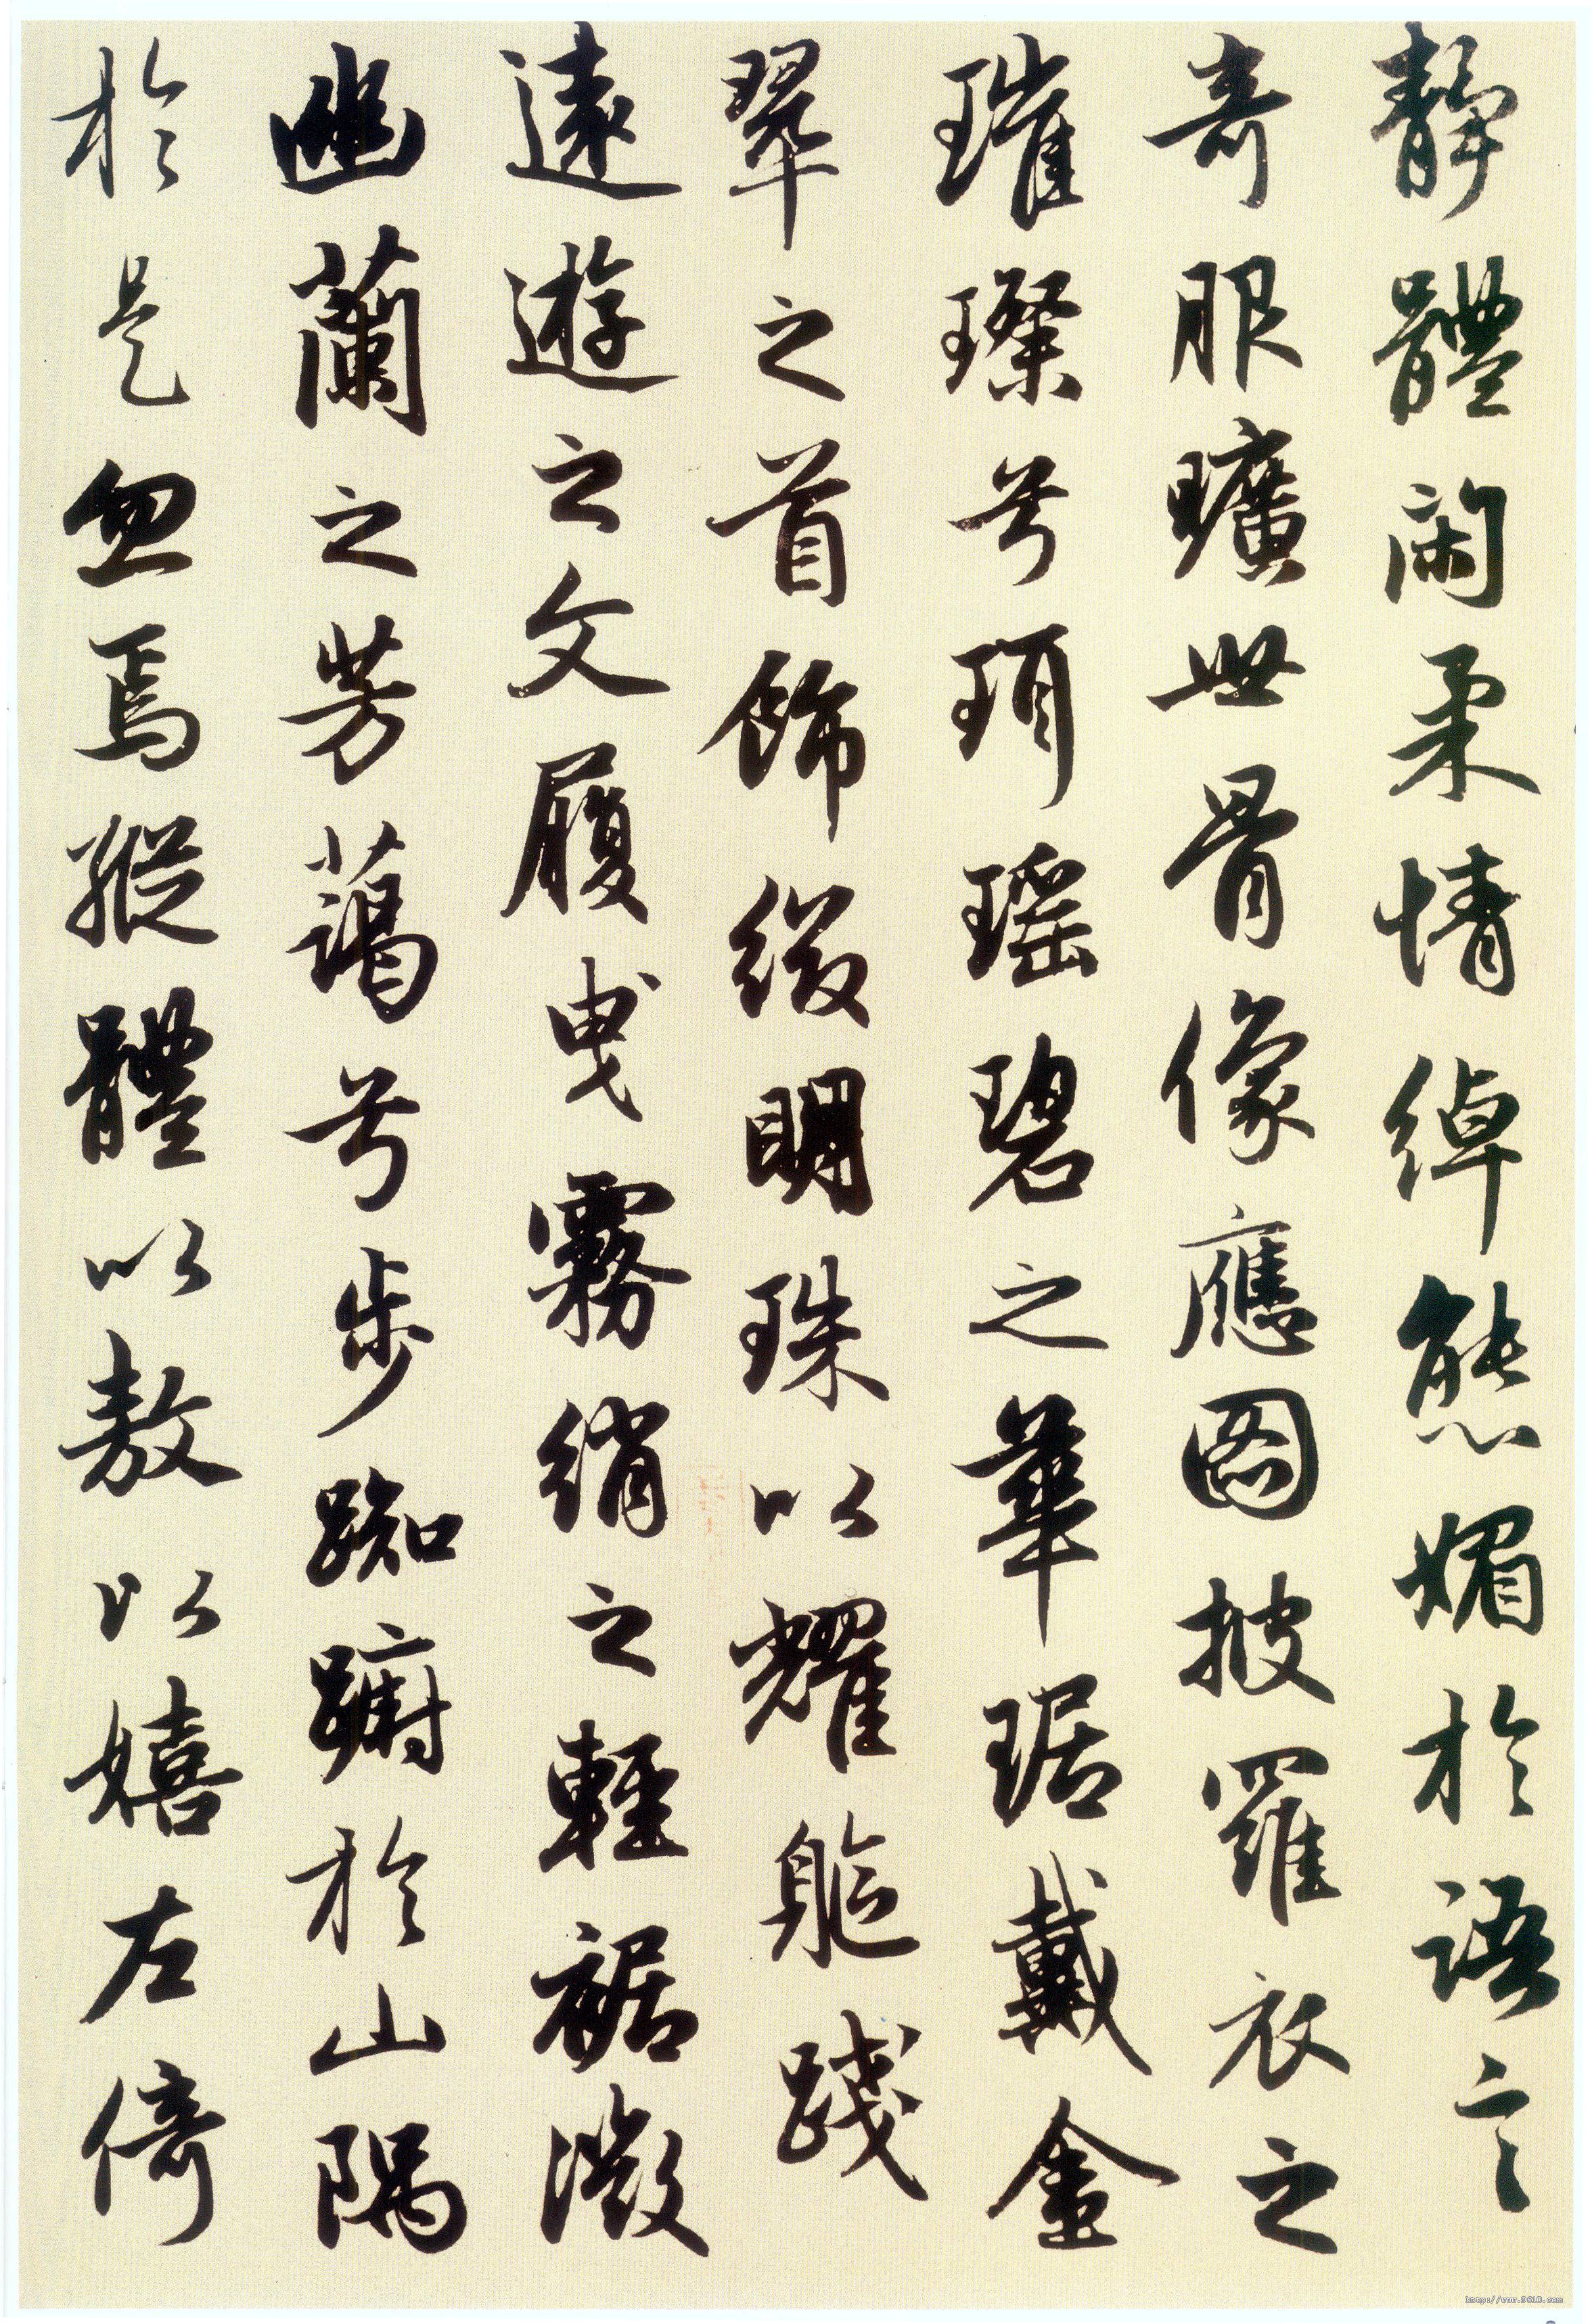 靜體閑柔情綽態媚於語言
奇服曠世骨像應圖披羅衣之
璀璨兮珥瑤碧之華琚戴金
翠之首飾綴明珠以耀軀踐
遠遊之文履曳霧綃之輕裾微
幽蘭之芳藹兮步踟躕於山隅
於是忽焉縱體以敖以嬉左倚
http://www.9610.com